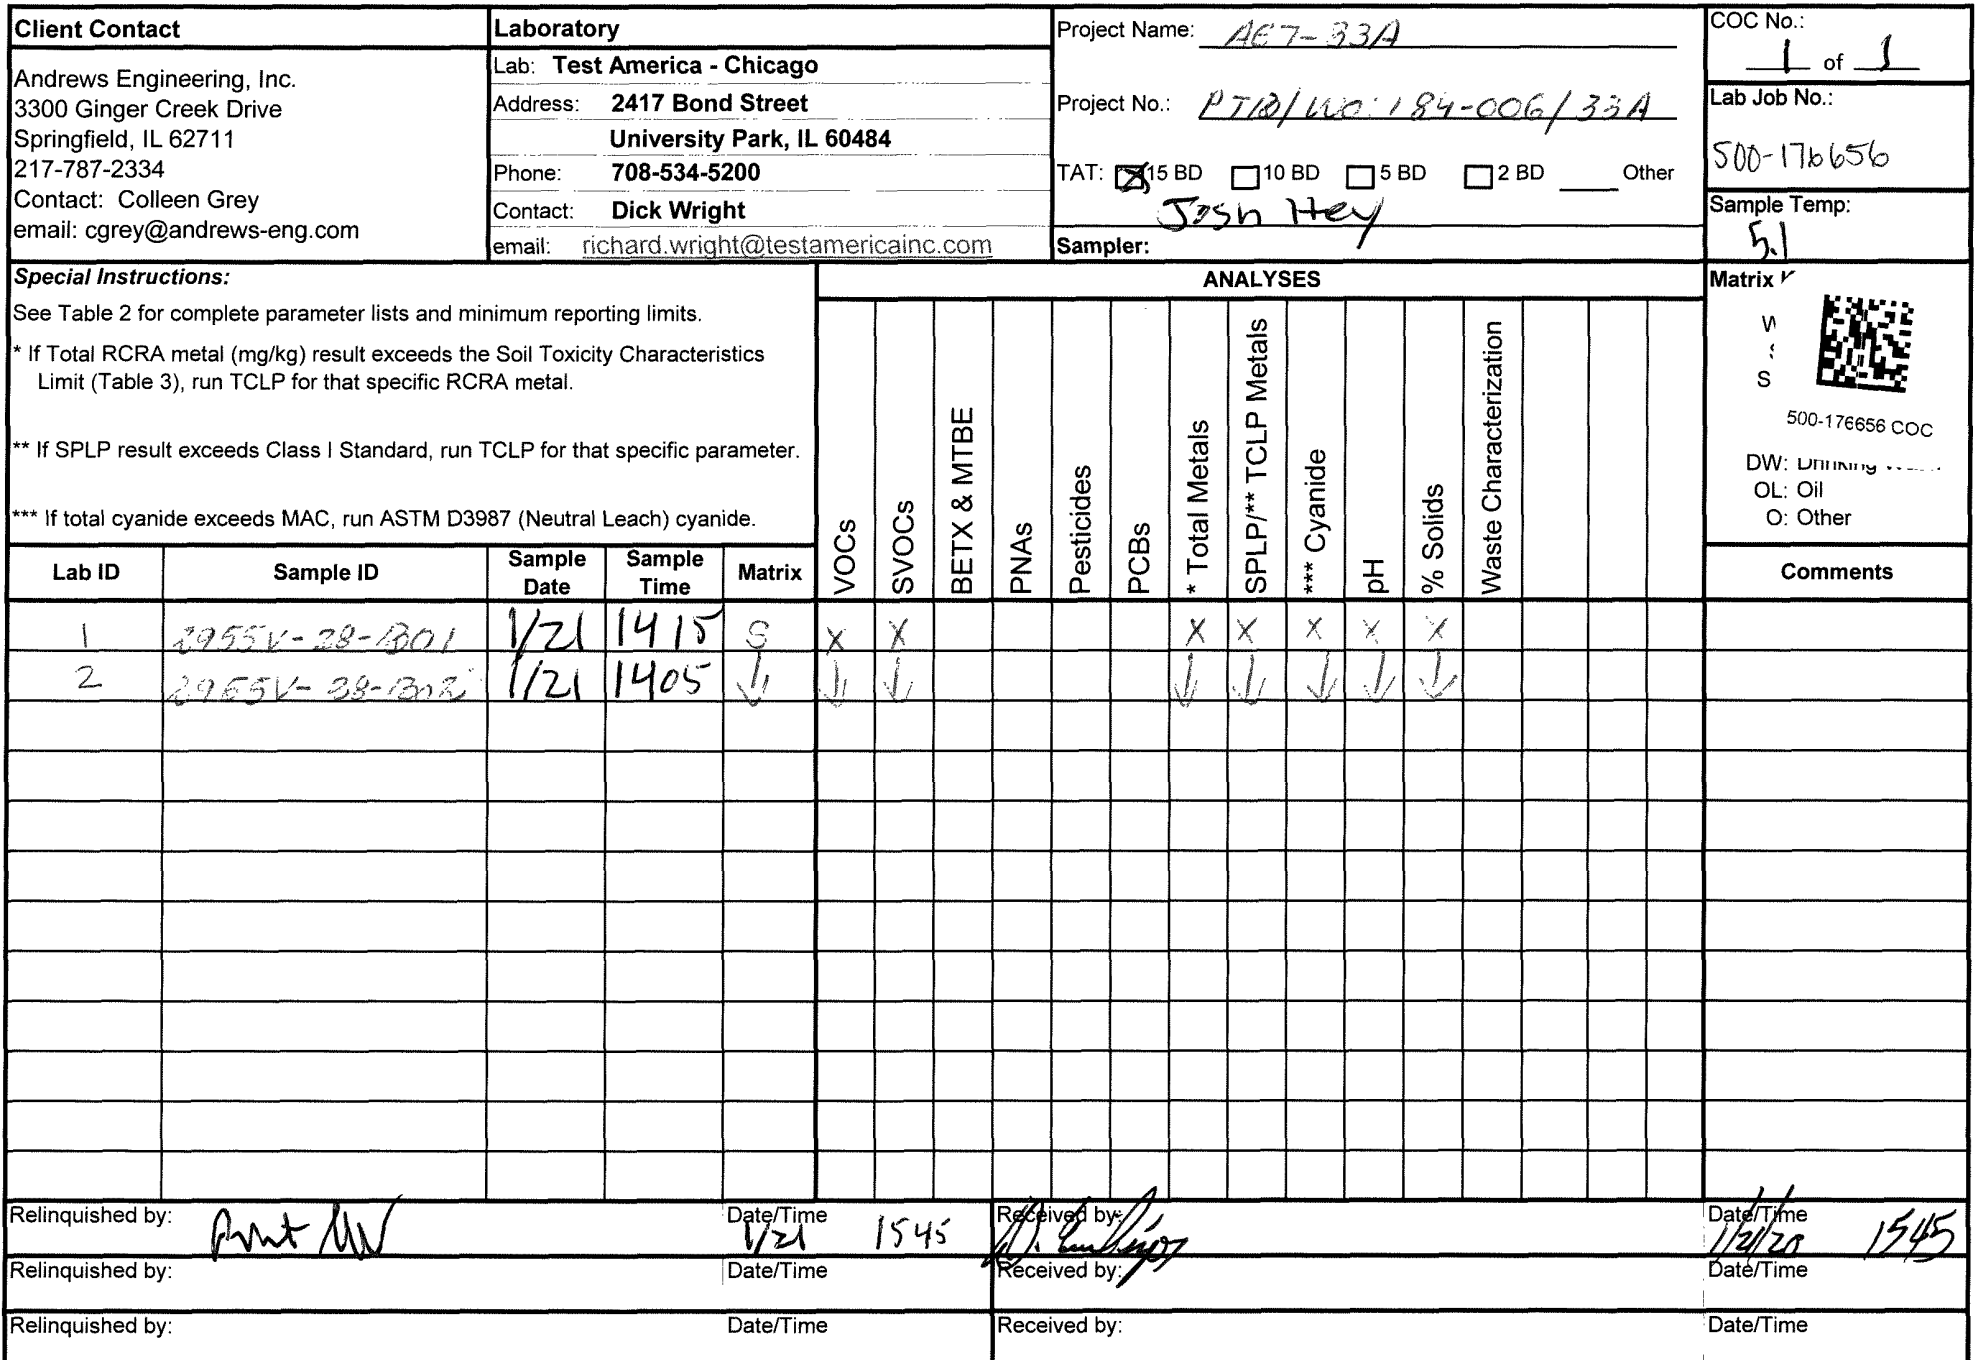 Client Contact
Andrews Engineering, Inc.
3300 Ginger Creek Drive
Springfield, IL 62711
217-787-2334
Contact: Colleen Grey
email: cgrey@andrews-eng.com
Laboratory
Lab: Test America - Chicago
Address: 2417 Bond Street
University Park, IL 60484
Phone: 708-534-5200
Contact: Dick Wright
email: richard.wright@testamericainc.com
Project Name: AE7-33A
Project No.: PTB/WO: 184-006/33A
TAT: X 15 BD 10 BD 5 BD 2 BD Other
Josh Hey
Sampler:
COC No.:
1 of 1
Lab Job No.:
500-176656
Sample Temp:
5.1
Special Instructions:
See Table 2 for complete parameter lists and minimum reporting limits.
* If Total RCRA metal (mg/kg) result exceeds the Soil Toxicity Characteristics
Limit (Table 3), run TCLP for that specific RCRA metal.
** If SPLP result exceeds Class I Standard, run TCLP for that specific parameter.
*** If total cyanide exceeds MAC, run ASTM D3987 (Neutral Leach) cyanide.
ANALYSES
VOCs
SVOCs
BETX & MTBE
PNAs
Pesticides
PCBs
* Total Metals
SPLP/** TCLP Metals
*** Cyanide
pH
% Solids
Waste Characterization
Matrix
W
S
500-176656 COC
DW: Drinking
OL: Oil
O: Other
Lab ID Sample ID Sample Date Sample Time Matrix Comments
1 2955V-38-B01 1/21 1415 S X X X X X X X
2 2955V-38-B02 1/21 1405 ↓ ↓ ↓ ↓ ↓ ↓ ↓ ↓
Relinquished by: Date/Time 1/21 1545 Received by: Date/Time 1/21/20 1545
Relinquished by: Date/Time Received by: Date/Time
Relinquished by: Date/Time Received by: Date/Time